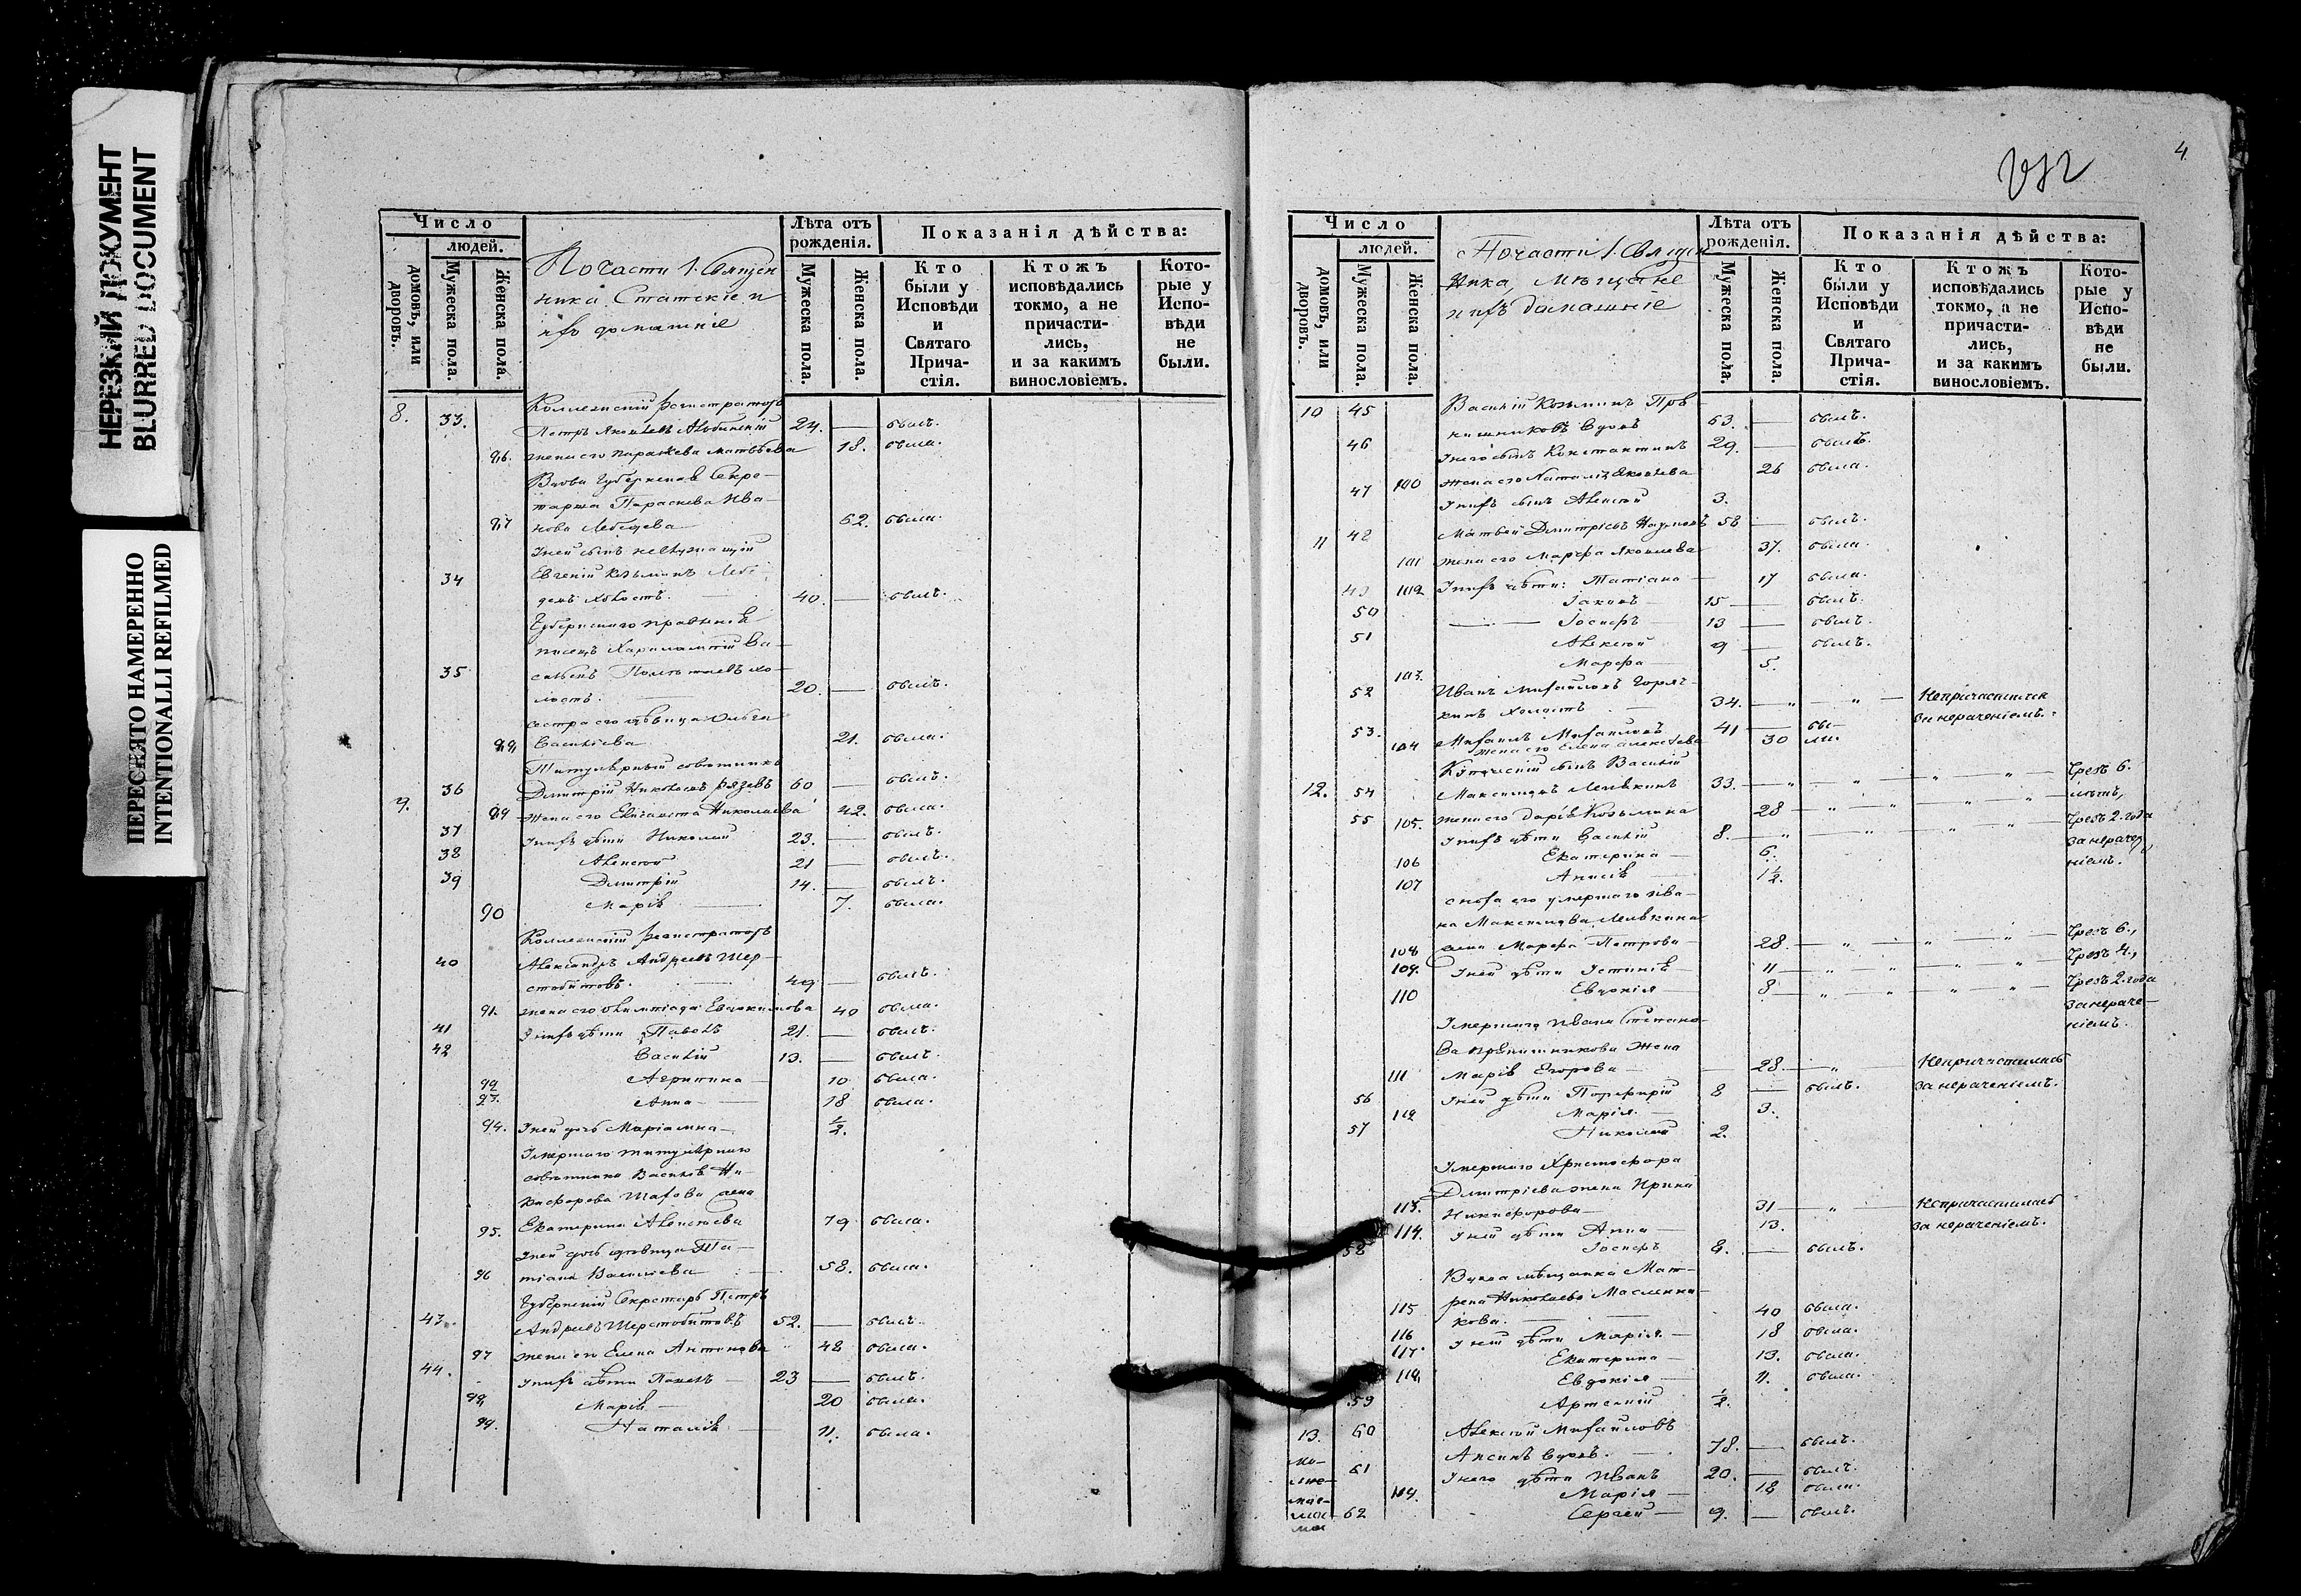 НЕРЕЗКИЙ ДОКУМЕНТ
BLURRED DOCUMENT
ПЕРЕСНЯТО НАМЕРЕННО
INTENTIONALLI REFILMED
Число
людей.
домовъ, или дворовъ.
Мужеска пола.
Женска пола.
По части 1. Священ
ника. Статские и
ихъ домашніе
Лѣта отъ рожденія.
Мужеска пола.
Женска пола.
Показанія дѣйства:
Кто были у Исповѣди и Святаго Прича-стія.
Ктожъ исповѣдались токмо, а не причасти-лись, и за какимъ винословіемъ.
Кото-рые у Испо-вѣди не были.
8. 33. Коллежскій регистраторъ
Петръ Яковлевъ 24. — былъ.
86. жена его Параскева Матвѣева 18. была.
Вдова Губернская Секре-
тарша Параскева Ива-
87 нова Лебедева 62. была.
У ней сынъ неслужащій
34 Евгеній Козьминъ Лебе-
девъ холостъ. 40. — былъ.
Губернскаго правленія
писецъ Харлампій Ва-
35 сильевъ хо-
лостъ. 20. — былъ.
сестра его дѣвица Ольга
88 Васильева 21. была.
Титулярный совѣтникъ
9. 36 Дмитрій Николаевъ 60 — былъ.
89 жена его Елисавета Николаева 42. была.
37 У нихъ дѣти Николай 23. — былъ.
38 Алексей 21 — былъ.
39 Дмитрій 14. — былъ.
90 Марія 7. была.
Коллежскій регистраторъ
40 Александръ Андреевъ Шер-
стобитовъ. 49 — былъ.
91. жена его Олимпіада Евдокимова 40 была.
41 У нихъ дѣти Павелъ 21. — былъ.
42 Василій 13. — былъ.
92 Агрипина 10 была.
93. Анна 18 была.
94. У ней дочь Маріамна ½.
Умершаго титулярнаго
совѣтника Василія Ни-
кифорова жена
95. Екатерина Алексеева 79 была.
У ней дочь дѣвица Та-
96 тіана Васильева 58. была.
Губернскій Секретарь Петръ
43. Андреевъ Шерстобитовъ 52. — былъ.
97 жена его Елена Антонова 48 была.
44. У нихъ дѣти Павелъ — 23 — былъ.
98 Марія 20 была.
99. Наталія 11. была.
4
Число
людей.
домовъ, или дворовъ.
Мужеска пола.
Женска пола.
По части 1. Священ
ника, Мѣщане
и ихъ домашніе
Лѣта отъ рожденія.
Мужеска пола.
Женска пола.
Показанія дѣйства:
Кто были у Исповѣди и Святаго Прича-стія.
Ктожъ исповѣдались токмо, а не причасти-лись, и за какимъ винословіемъ.
Кото-рые у Испо-вѣди не были.
10 45 Василій Козьминъ Пря-
нишниковъ вдовъ 63. — былъ.
46 У него сынъ Константинъ 29. — былъ.
100 жена его Наталія Яковлева 26 была.
47 У нихъ сынъ Алексей 3.
11 48 Матвей Дмитріевъ Наумовъ 58 — былъ.
101 жена его Марфа Яковлева 37. была.
49 102 У нихъ дѣти: Татіана 17 была.
50 Іаковъ 15 — былъ.
51 Іосифъ 13 — былъ.
Алексей 9 — былъ.
103. Марфа 5.
52 Иванъ Михайловъ Горяч-
кинъ Холостъ 34. — „ — „ — Непричастился
за нераченіемъ.
53. Михаилъ Михайловъ 41 — бы-
104 жена его Елена Алексеева 30 ли.
сынъ Василій
12. 54 Максимовъ 33. — Чрезъ 6.
лѣтъ,
105. жена его Дарія Козьмина 28 Чрезъ 2. года
55 У нихъ дѣти Василій 8. — за нераче-
106 Екатерина 6. ніемъ.
107 Анисія 1½.
сноха его умершаго Ива-
на Максимова
108 жена Марфа Петрова 28. — Чрезъ 6.,
109. У ней дѣти Устинія 11 — Чрезъ 4.,
110 Евдокія 8 — Чрезъ 2. года
за нераче-
ніемъ.
Умершаго Ивана Степано-
ва Прянишникова жена
111 Марія Егорова 28. — „ Непричастилась
56 У ней дѣти Порфирій 8 — былъ. за нераченіемъ.
112 Марія. 3.
57 Николай 2.
Умершаго Христофора
Дмитріева жена Ирина
113. Никифорова 31 — „ — Непричастилась
114. У ней дѣти Анна 13. за нераченіемъ.
58 Іосифъ 8. — былъ.
Вдова мѣщанка Мат-
рена Николаева Масленни-
115 кова. 40 была.
116 У ней дѣти Марія. 18 была.
117. Екатерина 13. была.
118 Евдокія 11. была.
59 Артемій ½.
13. 60 Алексей Михайловъ
вдовъ. 78. — былъ.
61 У него дѣти Иванъ 20. — былъ.
119. Марія 18 была.
62 Сергей 9. — былъ.